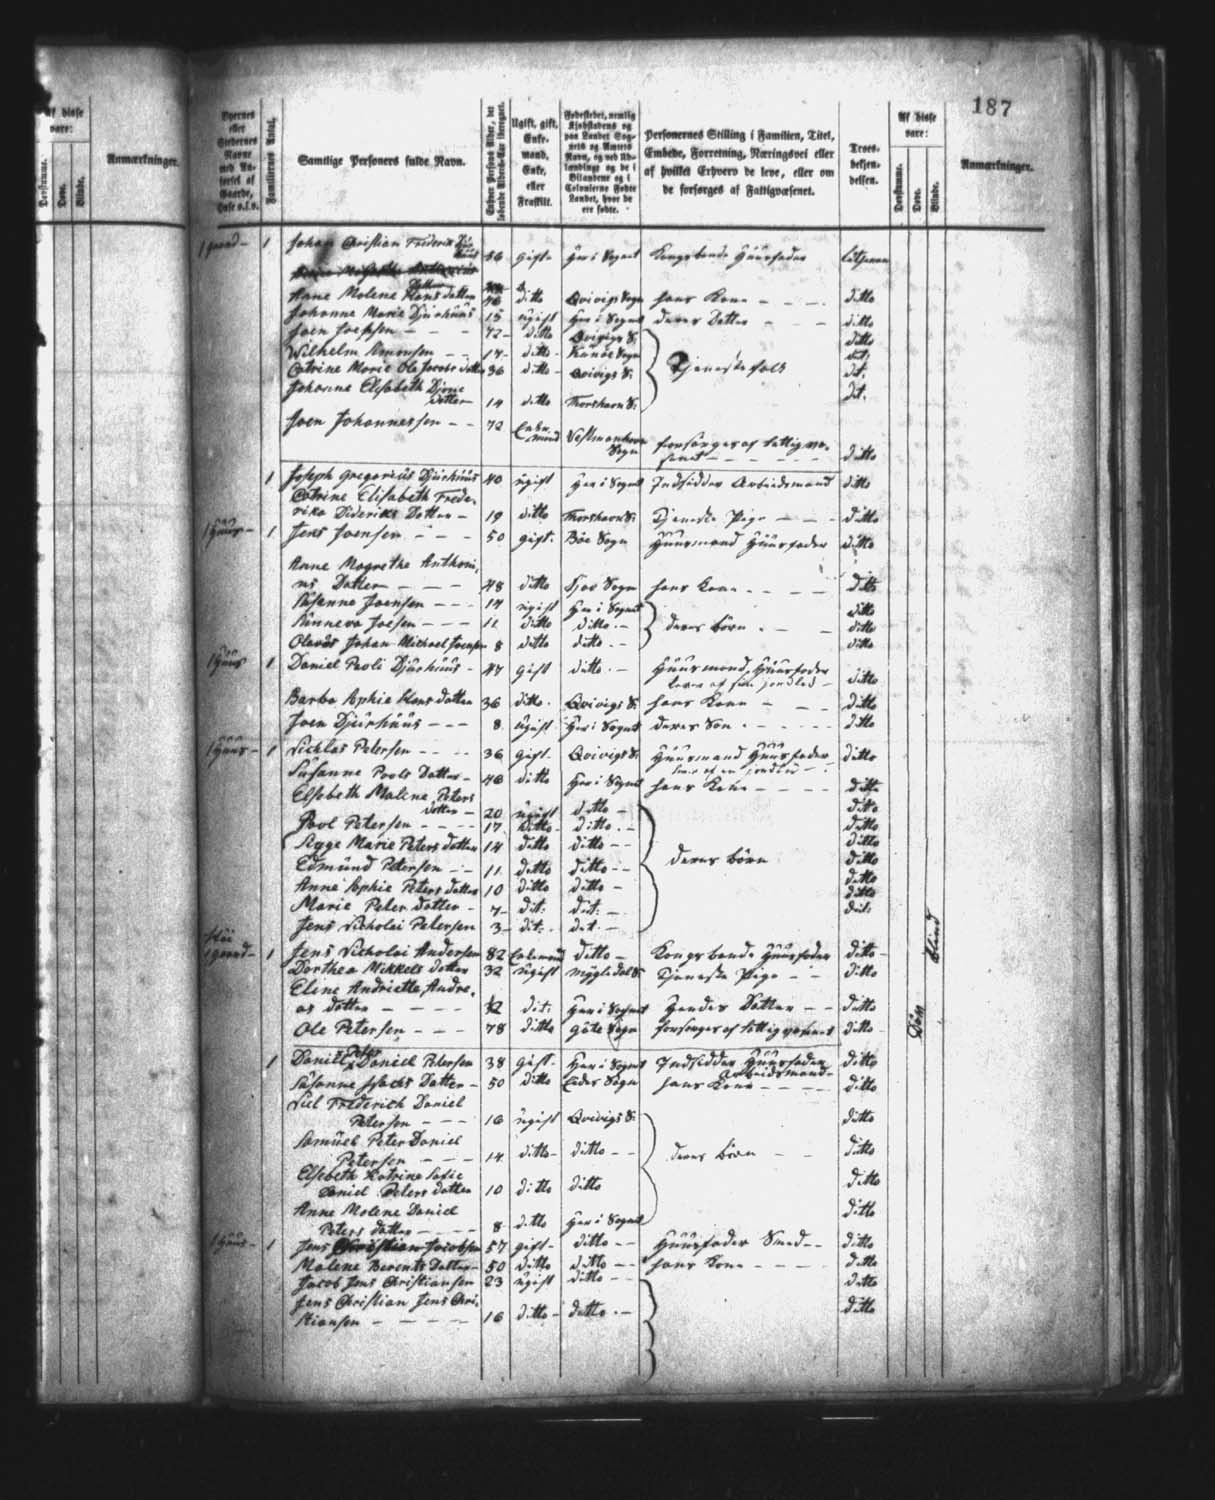 187
Af disse vare:
Døvstumme.
Døve.
Blinde.
Anmærkninger.
Byernes eller Stedernes Navne med Antallet af Gaarde, Huse o.s.v.
Familiernes Antal.
Samtlige Personers fulde Navn.
Ugift, gift, Enkemand, Enke, eller Fraskilt.
Fødestedet, nemlig Kjøbstadens og paa Landet Sognets og Amtets Navn, og ved Udlændinge og de i Bilandene og i Colonierne Fødte Landet, hvor de ere fødte.
Personernes Stilling i Familien, Titel, Embede, Forretning, Næringsvei eller af hvilket Erhverv de leve, eller om de forsørges af Fattigvæsenet.
Troesbekjendelsen.
Af disse vare:
Døvstumme.
Døve.
Blinde.
Anmærkninger.
1 gaard - 1 Johan Christian Frederik Djurhuus 56 gift - Her i Sognet Kongsbonde Huusfader
Anne Malene Hans datter ditto Qvivigs Sogn hans Kone - - - ditto
Johanne Marie Djurhuus 15 ugift Her i Sognet deres Datter - - ditto
Joen Joensen - - - 72 - ditto Qvivigs S: ditto
Wilhelm Simonsen - - 17 - ditto - Sogn dit:
Catrine Marie Ole Jacobs datter 36 ditto - Qvivigs S: Tjenestefolk dit.
Johanne Elsebeth
Datter - 14 ditto Thorshavn S: dit.
Joen Johannessen - - 72 Enkemand Vestmanhavn Sogn forsørges af fattigvæsenet - - - ditto
1 Joseph Gregorius Djurhuus 40 ugift Her i Sognet Indsidder Arbeidsmand ditto
Catrine Elisabeth Frede-
rika Dideriks Datter - 19 ditto Thorshavn S: Tjeneste Pige - - - ditto
1 Huus - 1 Jens Joensen - - - 50 gift. Bøe Sogn Huusmand Huusfader ditto
Anne Magrethe Anthoni-
us Datter - - - 48 ditto Sogn hans Kone - - - ditto
Susanne Joensen - - - 14 ugift Her i Sognet ditto
Sunneva Joensen - - - 11 ditto ditto - deres børn - - ditto
Olevus Johan Michael Joensen 8 ditto ditto - - ditto
1 Huus 1 Daniel Paoli Djurhuus - 47 gift ditto - Huusmand, Huusfader
lever af sin jordlod - ditto
Barbe Sophie Hans datter 36 ditto. Qvivigs S: hans Kone - - - ditto
Joen Djurhuus - - - 8 ugift Her i Sognet deres Søn - - - ditto
1 Huus - 1 Nicklas Petersen - - - 36 gift - Qvivigs S: Huusmand Huusfader ditto
Susanne Pouls Datter - 46 ditto Her i Sognet hans Kone - - - - ditto
Elsebeth Malene Peters
datter - 20 ugift ditto - ditto
Poul Petersen - - - - 17 ditto - ditto - - ditto
Sigge Marie Peters datter 14 ditto ditto - - ditto
Edmund Petersen - - 11 ditto ditto - - deres børn ditto
Anne Sophie Peters datter 10 ditto ditto - ditto
Marie Peter datter - 7 - dit: dit: - ditto
Jens Nicholai Petersen 3 - dit: - dit - dit:
1 gaard - 1 Jens Nicholai Andersen 82 Enkemand ditto - Kongsbonde Huusfader ditto - blind
Dorthea Mikkels datter 32 ugift Tjeneste Pige - - ditto
Elene Andriette Andre-
as datter - - - - 12 dit: Her i Sognet Hendes Datter - - ditto
Ole Petersen - - - 78 ditto Gøte Sogn forsørges af fattigvæsenet ditto - Døv
1 Daniel Peter Daniel Petersen 38 gift - Her i Sognet Indsidder Huusfader Arbeidsmand - ditto
Susanne Isachs Datter - 50 ditto Eides Sogn hans Kone - - - - ditto
Niel Frederich Daniel
Petersen - - - 16 ugift Qvivigs S: ditto
Samuel Peter Daniel
Petersen - - - 14 ditto - ditto - - deres børn - - ditto
Elsebeth Katrine Sofie
Daniel Peters datter 10 ditto ditto ditto
Anne Malene Daniel
Peters datter - - - 8 ditto Her i Sognet ditto
1 Huus - 1 Jens Christian Jacobsen 57 gift - ditto - - Huusfader Smed - - ditto
Malene Berents Datter - 50 ditto ditto - - hans Kone - - - - ditto
Jacob Jens Christiansen 23 ugift ditto - - ditto
Jens Christian Jens Chri-
stiansen - - - - 16 ditto - ditto - - ditto